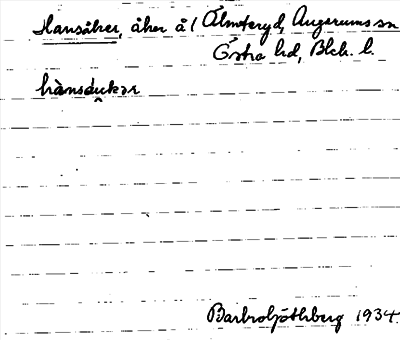 Hansåker, åker å 1 Älmteryd, Augerums sn
Östra hd, Blek. l.
hànsåukər
Barbro Göthberg 1934